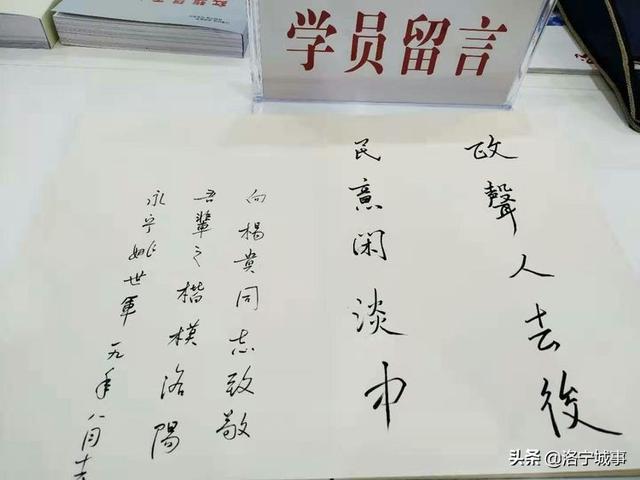 学员留言
政聲人去後
民意闲淡中
向楊贵同志致敬
吾輩之楷模洛陽
永宁姚世軍 一九年八月十
头条 @洛宁城事